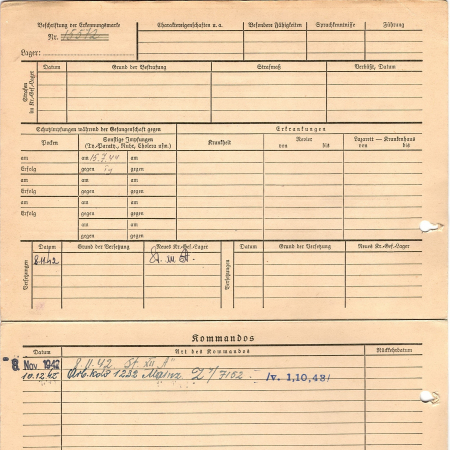 Beschriftung der Erkennungsmarke
Nr. 15512
Lager:
Charaktereigenschaften u. a.
Besondere Fähigkeiten
Sprachkenntnisse
Führung
Strafen im Kr.-Gef.-Lager
Datum
Grund der Bestrafung
Strafmaß
Verbüßt, Datum
Schutzimpfungen während der Gefangenschaft gegen
Erkrankungen
Pocken
Sonstige Impfungen
(Ty.-Paraty., Ruhr, Cholera usw.)
Krankheit
Revier
von bis
Lazarett — Krankenhaus
von bis
am am 15.7.44 am
Erfolg gegen gegen
am am am
Erfolg gegen gegen
am am am
Erfolg gegen gegen
am am
gegen gegen
Versetzungen
Datum
Grund der Versetzung
Neues Kr.-Gef.-Lager
8.11.42
Versetzungen
Datum
Grund der Versetzung
Neues Kr.-Gef.-Lager
Kommandos
Datum
Art des Kommandos
Rückkehrdatum
8. Nov. 1942 8.11.42 St. XII "A"
10.12.42 Arb. Kdo 1232 Mainz Z1/7152 - /v. 1,10,43/